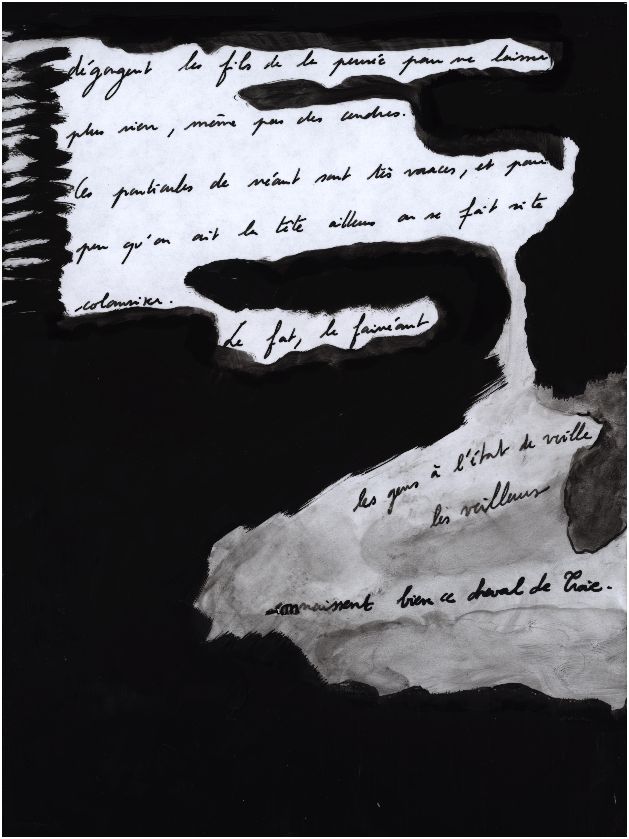 dégorgent les fils de la pensée pour ne laisser
plus rien, même pas des cendres.
Ces particules de néant sont très voraces, et pour
peu qu'on ait la tête ailleurs on se fait vite
coloniser.
Le fat, le fainéant
les gens à l'état de veille
les veilleurs
connaissent bien ce cheval de Troie.